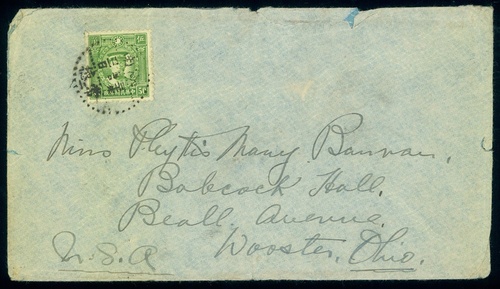 Miss Phylis Mary Bannan.
Babcock Hall.
Beall Avenue.
Wooster, Ohio.
U.S.A